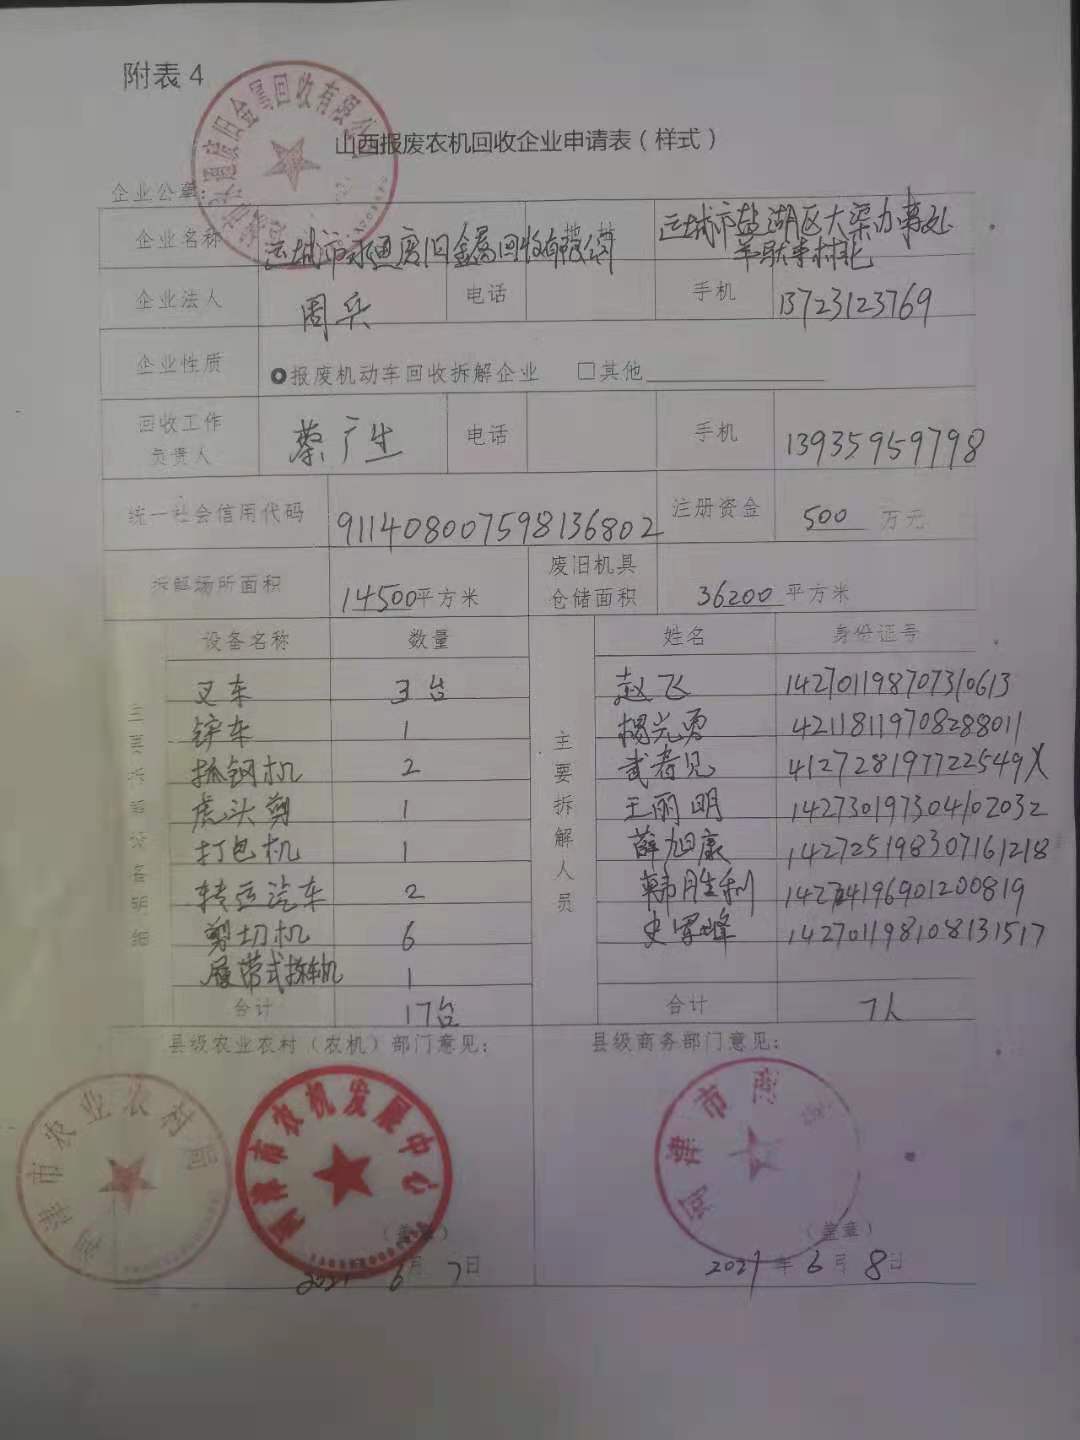 附表4
山西报废农机回收企业申请表（样式）
企业公章：
企业名称 运城市永通废旧金属回收有限公司 运城市盐湖区大渠办事处
羊驮寺村北
企业法人 周头 电话 手机 13723123769
企业性质 报废机动车回收拆解企业 □其他
回收工作负责人 蔡广生 电话 手机 13935959798
统一社会信用代码 911408007598136802 注册资金 500 万元
拆解场所面积 14500平方米 废旧机具仓储面积 36200 平方米
主要拆解设备明细 设备名称 数量 主要拆解人员 姓名 身份证号
叉车 3台 赵飞 142701198707310613
铲车 1 杨光勇 42118119708288011
抓钢机 2 武者见 41272819772254 9X
虎头剪 1 王丽明 142730197304102032
打包机 1 薛旭康 142725198307161218
转运汽车 2 韩胜利
剪切机 6 史军峰 142701198108131517
履带式拆车机 1
合计 17台 合计 7人
县级农业农村（农机）部门意见： 县级商务部门意见：
河津市农业农村局
河津市农机发展中心
河津市商务
（盖章） （盖章）
2021 6月7日 2021年6月8日